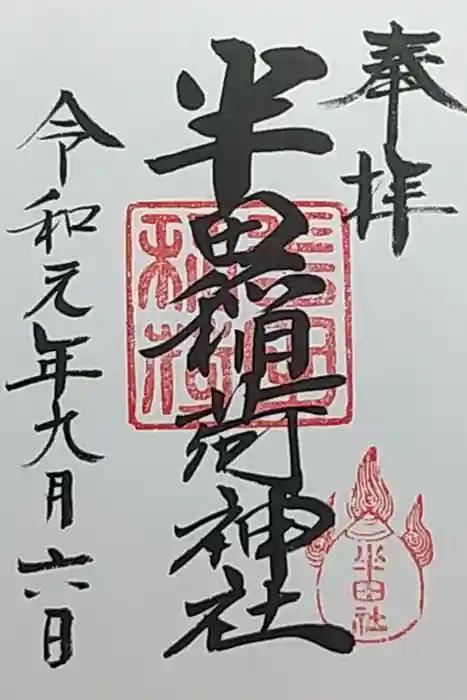 奉拝
半田稲荷神社
半田社
令和元年九月六日